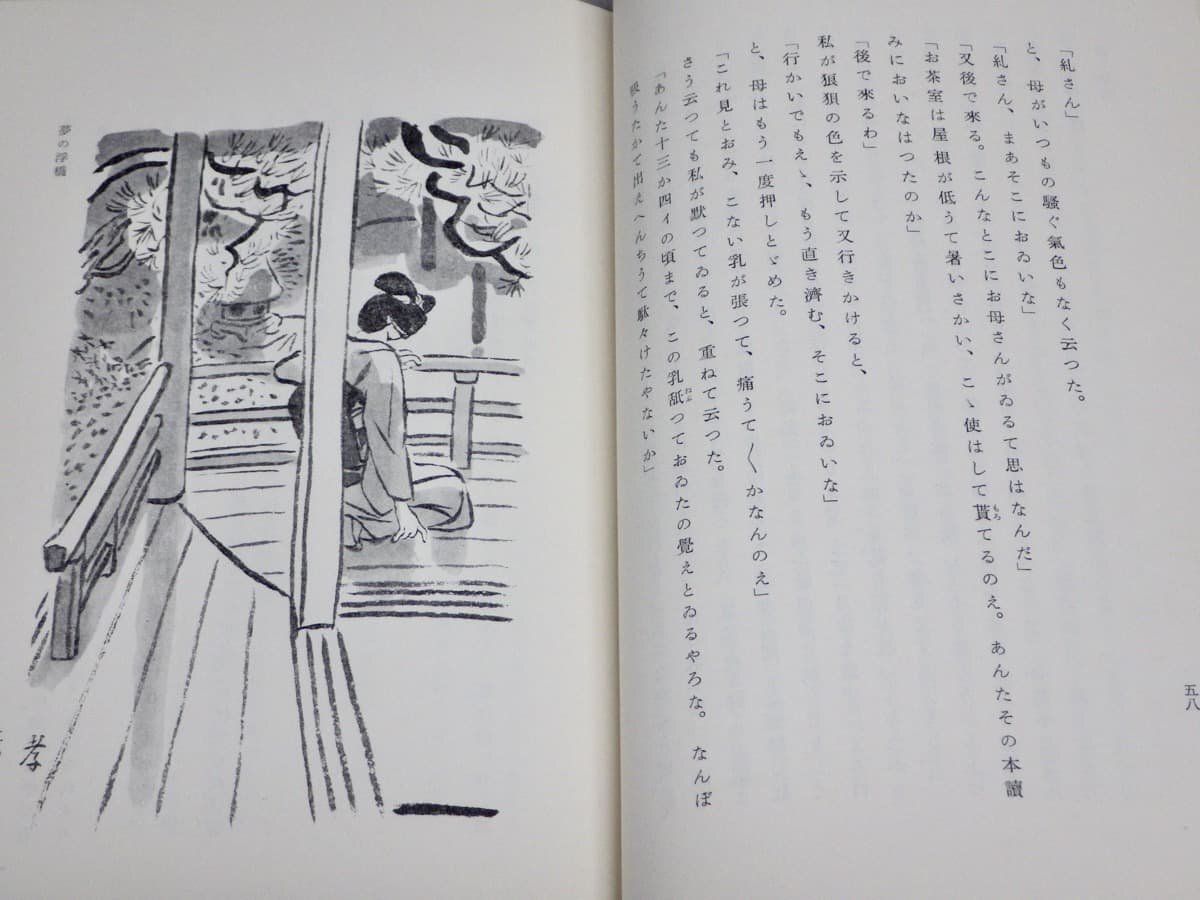 「糺さん」
と、母がいつもの騷ぐ氣色もなく云つた。
「糺さん、まあそこにおゐいな」
「又後で來る。こんなとこにお母さんがゐるて思はなんだ」
「お茶室は屋根が低うて暑いさかい、こゝ使はして貰てるのえ。あんたその本讀
もろ
みにおいなはつたのか」
「後で來るわ」
私が狼狽の色を示して又行きかけると、
「行かいでもえゝ、もう直き濟む、そこにおゐいな」
と、母はもう一度押しとゞめた。
「これ見とおみ、こない乳が張つて、痛うて〳〵かなんのえ」
さう云つても私が默つてゐると、重ねて云つた。
「あんた十三か四イの頃まで、この乳舐つておゐたの覺えとゐるやろな。なんぼ
ねぶ
吸うたかて出えへんちうて駄々けたやないか」
五八
夢の浮橋
孝